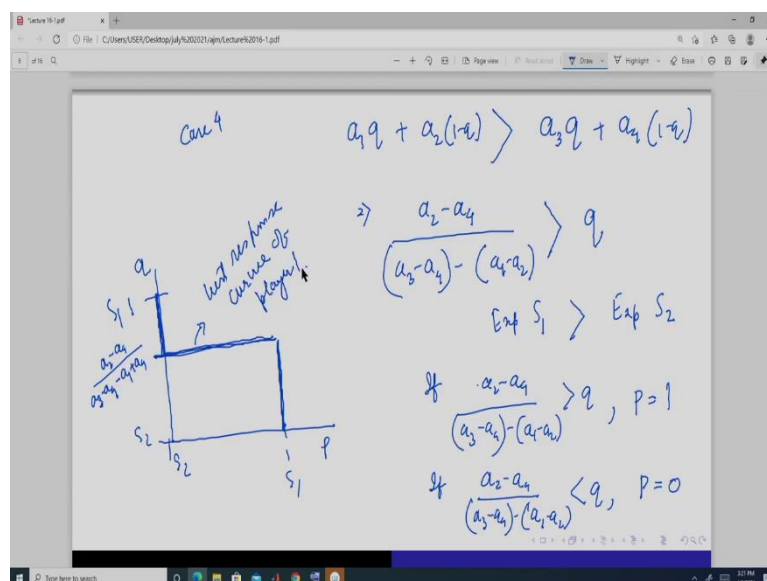 *Lecture 16-1.pdf
File | C:/Users/USER/Desktop/july%202021/ajm/Lecture%2016-1.pdf
of 16
Page view
Read aloud
Draw
Highlight
Erase
Case 4
a₁q + a₂(1-q) > a₃q + a₄(1-q)
⇒ a₂-a₄ / (a₃-a₄)-(a₁-a₂) > q
Exp S₁ > Exp S₂
If a₂-a₄ / (a₃-a₄)-(a₁-a₂) > q, P=1
If a₂-a₄ / (a₃-a₄)-(a₁-a₂) < q, P=0
best response
curve of
player 1.
q
S₁ 1
S₂
S₂
1
S₁
P
Type here to search
3:21 PM